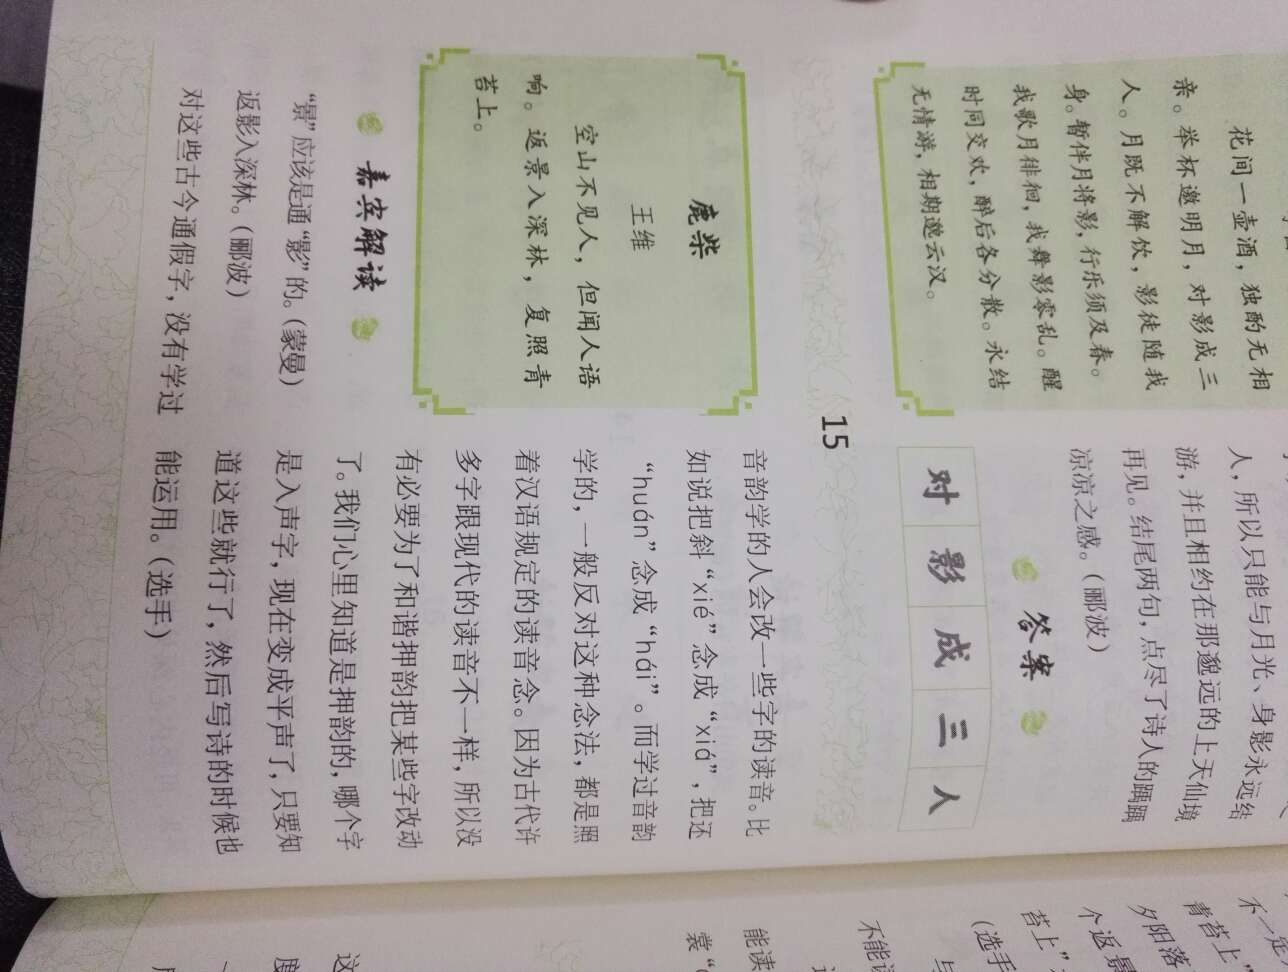 花间一壶酒，独酌无相
亲。举杯邀明月，对影成三
人。月既不解饮，影徒随我
身。暂伴月将影，行乐须及春。
我歌月徘徊，我舞影零乱。醒
时同交欢，醉后各分散。永结
无情游，相期邈云汉。
人，所以只能与月光、身影永远结
游，并且相约在那邈远的上天仙境
再见。结尾两句，点尽了诗人的踽踽
凉凉之感。（郦波）
答案
对影成三人
15
鹿柴
王维
空山不见人，但闻人语
响。返景入深林，复照青
苔上。
嘉宾解读
“景”应该是通“影”的。（蒙曼）
返影入深林。（郦波）
对这些古今通假字，没有学过
音韵学的人会改一些字的读音。比
如说把斜“xié”念成“xiá”，把还
“huán”念成“hái”。而学过音韵
学的，一般反对这种念法，都是照
着汉语规定的读音念。因为古代许
多字跟现代的读音不一样，所以没
有必要为了和谐押韵把某些字改动
了。我们心里知道是押韵的，哪个字
是入声字，现在变成平声了，只要知
道这些就行了，然后写诗的时候也
能运用。（选手）
不一定
青苔上”
夕阳落
个返景
苔上”
（选手
不能读
能读
裳“
这
度